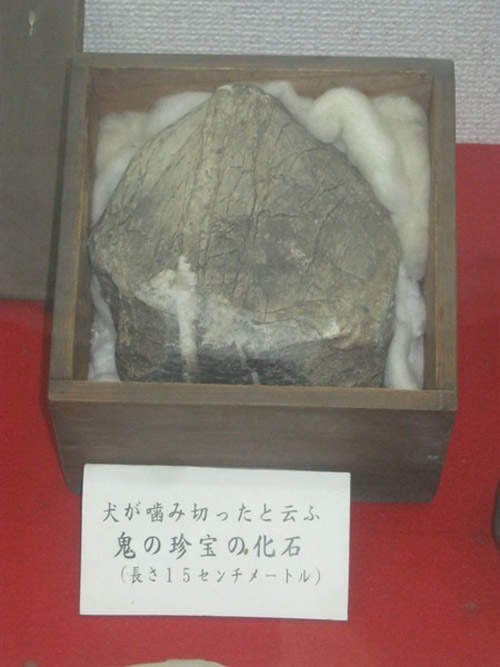 犬が噛み切ったと云ふ
鬼の珍宝の化石
(長さ15センチメートル)